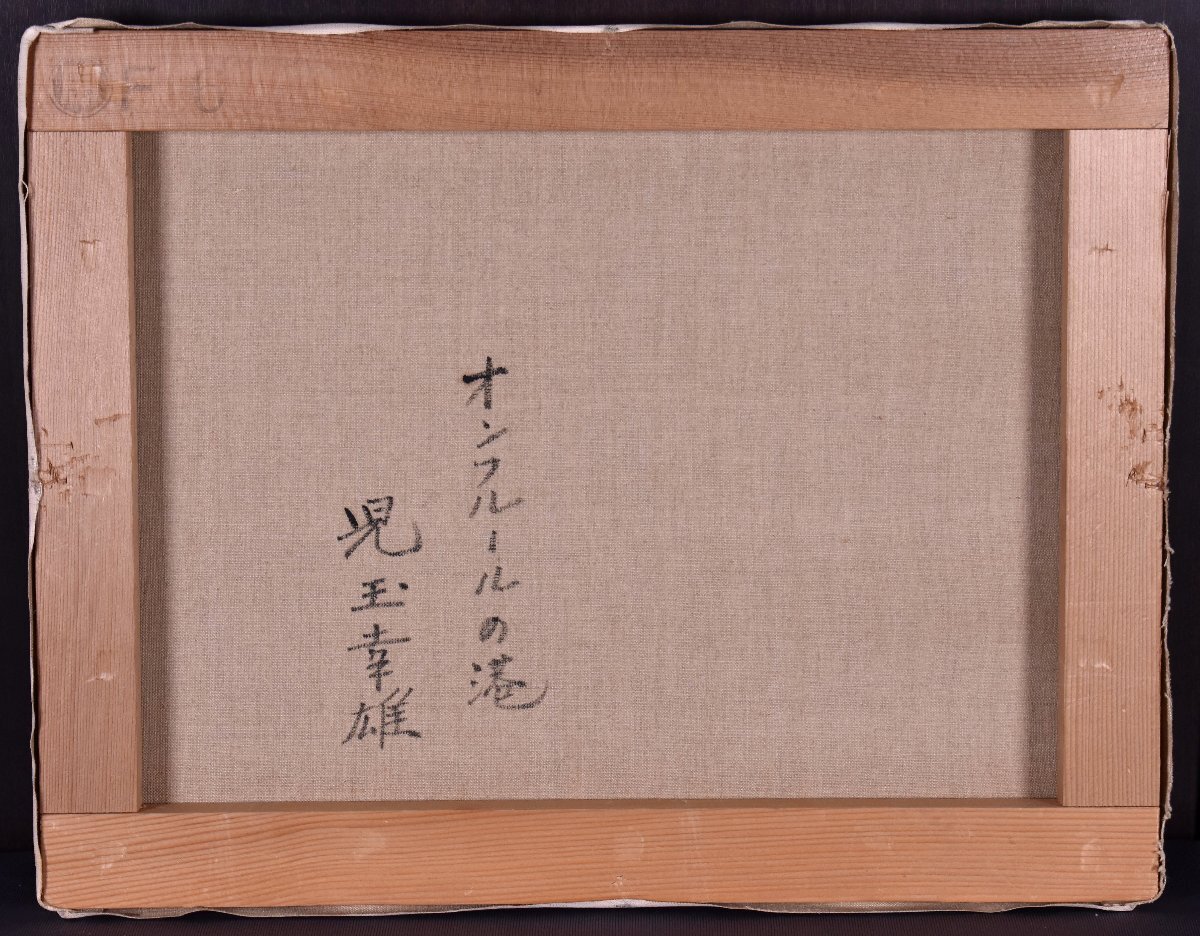 オンフルールの港
児玉幸雄